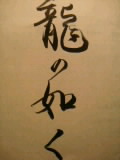 龍の如く